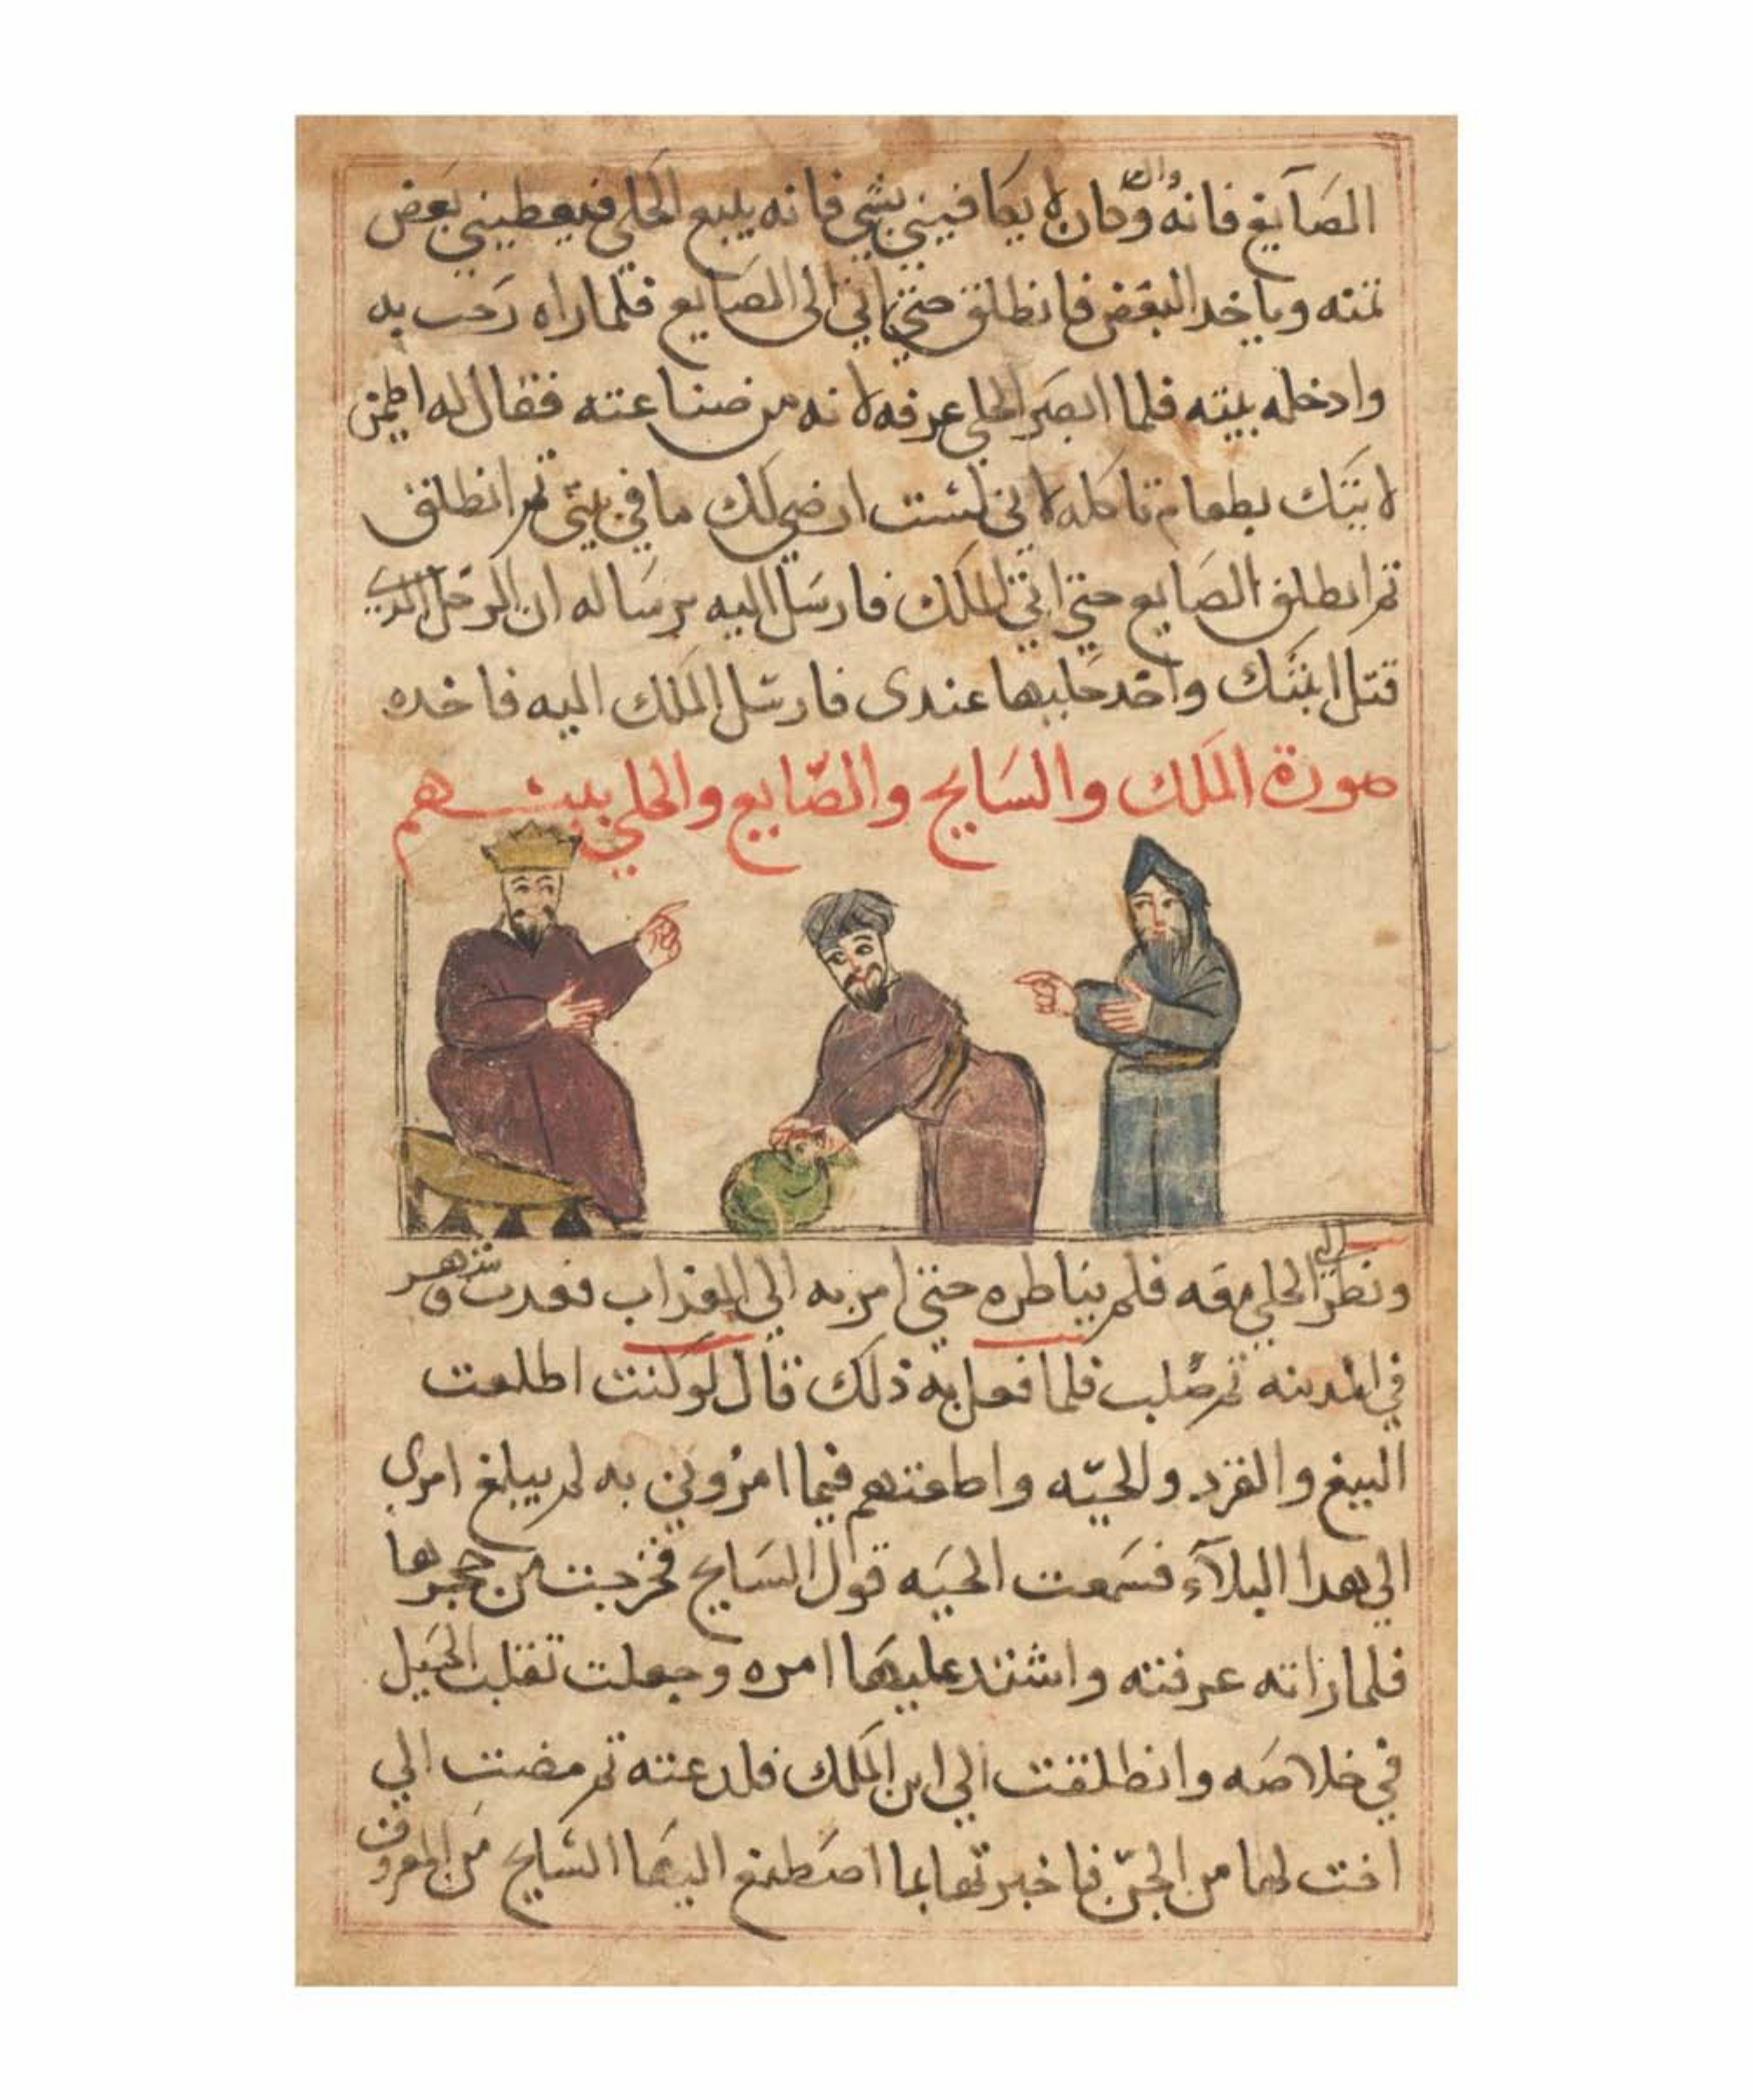 الصآيغ فانه وان كان لا يكافيني بشي فانه يبيع الحلي فيعطيني بعض
ثمنه وياخد البعض فانطلق حتي اتي الى الصايع فلما راه رحب به
وادخله بيته فلما ابصر الحلي عرفه لانه من صناعته فقال له اطمن
لاتيك بطعام تاكله لاني لست ارضي لك ما في بيتي ثم انطلق
ثم انطلق الصايع حتي اتي الملك فارسل اليه برساله ان الرجل الدي
قتل ابنتك واخد حليها عندى فارسل الملك اليه فاخده
صورة الملك والسايح والصّايع والحلي بينهم
ونظر الي الحلي معه فلم يناظره حتي امر به الي العداب فعدب وشهر
في المدينه ثم صُلب فلما فعل به ذلك قال لو كنت اطلعت
الببغ والقرد والحيّه واطعتهم فيما امروني به لم يبلغ امرى
الي هدا البلآء فسمعت الحيه قول السايح فخرجت من حجرها
فلما راته عرفته واشتد عليها امره وجعلت تقلب الحيل
في خلاصه وانطلقت الي ابن الملك فلدعته ثم مضت الي
اخت لها من الجن فاخبرتها بما اصطنع اليها السايح من المعروف